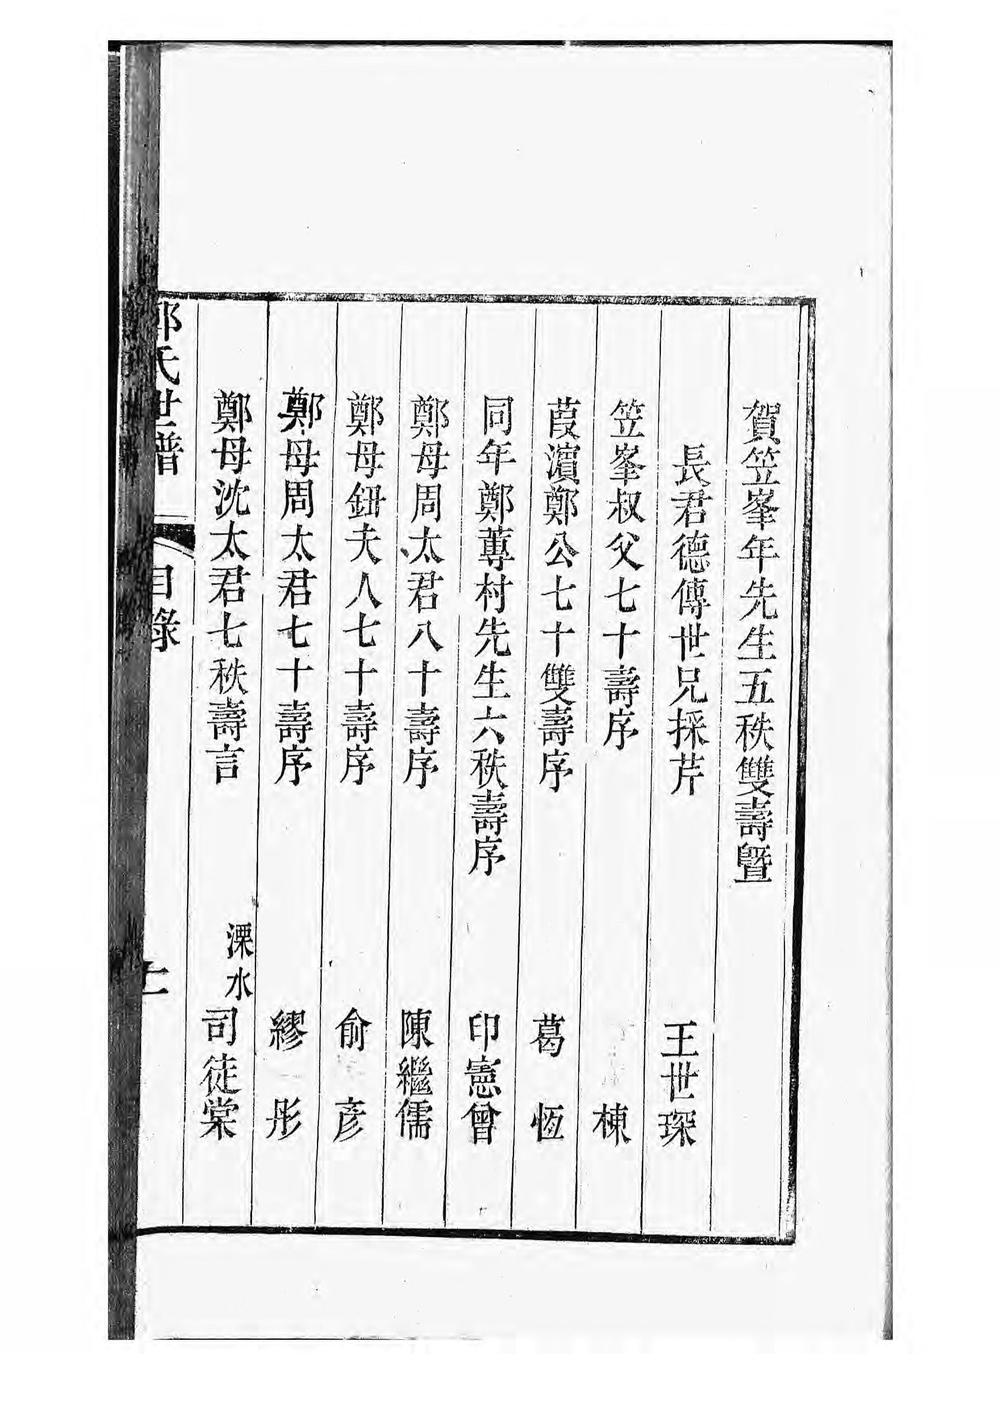 賀笠峯年先生五秩雙壽曁
長君德傳世兄採芹 王世琛
笠峯叔父七十壽序 棟
葭濵鄭公七十雙壽序 葛恆
同年鄭蓴村先生六秩壽序 印憲曾
鄭母周太君八十壽序 陳繼儒
鄭母鈕夫人七十壽序 俞彥
鄭母周太君七十壽序 繆彤
鄭母沈太君七秩壽言 溧水 司徒棠
鄭氏世譜 目錄